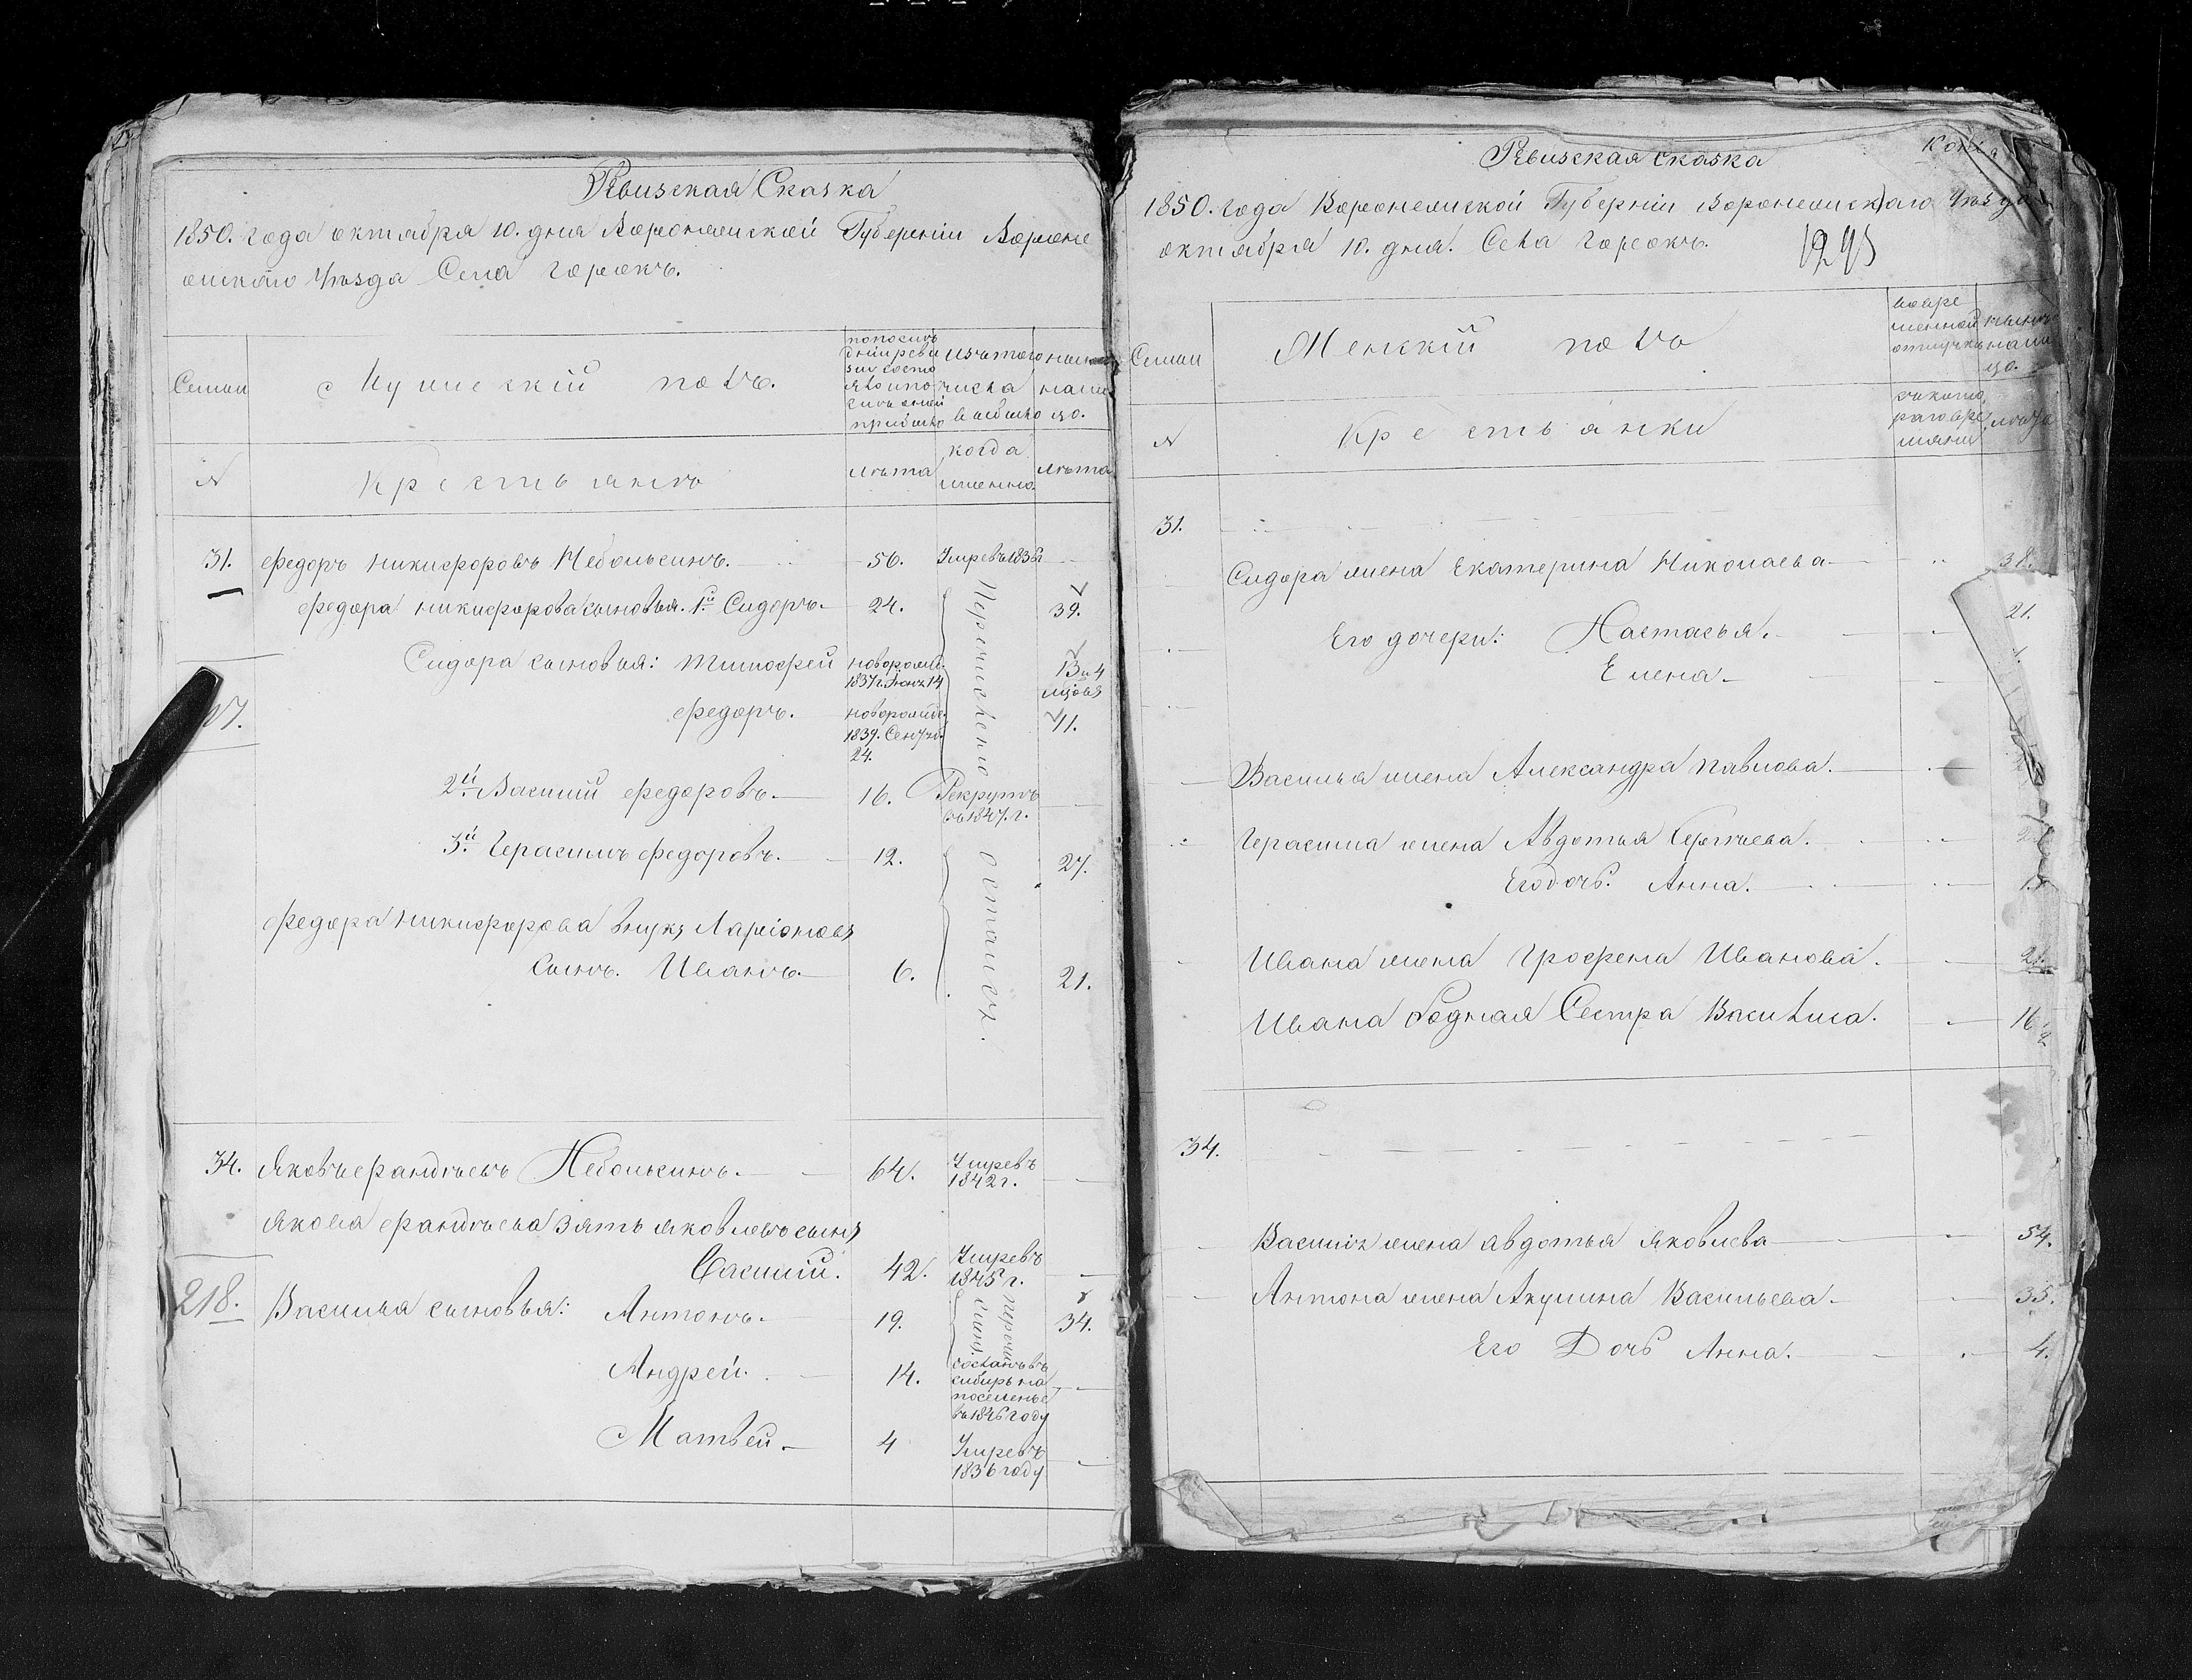 Ревизская Сказка
1850. года октября 10. дня Воронежской Губерніи Вороне
жскаго Уѣзда Села Горокъ.
Семьи
Мужескій полъ.
по послѣ
дній реви
зіи состо
яло и по
слѣ оной
прибыло
изъ того
числа
выбыло
нынѣ
на ли
цо.
N
Крестьянъ
лѣта
когда
именно.
лѣта
31. Федоръ Никифоровъ Небольсинъ. 56. Умре въ 1836 г
Федора Никифорова сыновья. 1й Сидоръ. 24. 39.
Сидора сыновья: Тимофей новорожд. 13 и 4
1837 г. 14 мѣсяца
217. Федоръ. новорожде. 11.
1839. Сентяб.
24.
Перечислено
2й Василий Федоровъ. 16. Рекрутъ
въ 1847. г.
3й Герасимъ Федоровъ. 12. 27.
Федора Никифорова внукъ Ларіоновъ
Сынъ. Иванъ. 6. 21.
остались.
34. Яковъ Фандѣевъ Небольсинъ. 64. Умре въ
1842 г.
Якова Фандѣева зять Яковлевъ сынъ
Василий. 42. Умре въ
1845 г.
218. Василья сыновья: Антонъ. 19. 34.
Андрей. 14. сосланъ въ
сибирь на
поселенье
въ 1846 году
Матвей. 4 Умре въ
1836 году
Ревизская сказка Копія
1850. года Воронежской Губерніи Воронежскаго Уѣзда
октября 10. дня. Села Горокъ.
1295
Семьи
Женскій полъ
во вре
менной
отлучкѣ
нынѣ
на ли
цо.
N
Крестьянки
съ кото
раго вре
мяни
лѣта
31.
Сидора жена Екатерина Николаева 38.
Его дочери: Настасья. 21.
Елена
Василья жена Александра Павлова.
Герасима жена Авдотья Сергѣева.
Его дочь. Анна.
Ивана жена Грофена Иванова. 21.
Ивана Родная Сестра Василиса. 16
34.
Василия жена Авдотья Яковлева 54.
Антона жена Акулина Васильева 35.
Его Дочь Анна. 4.